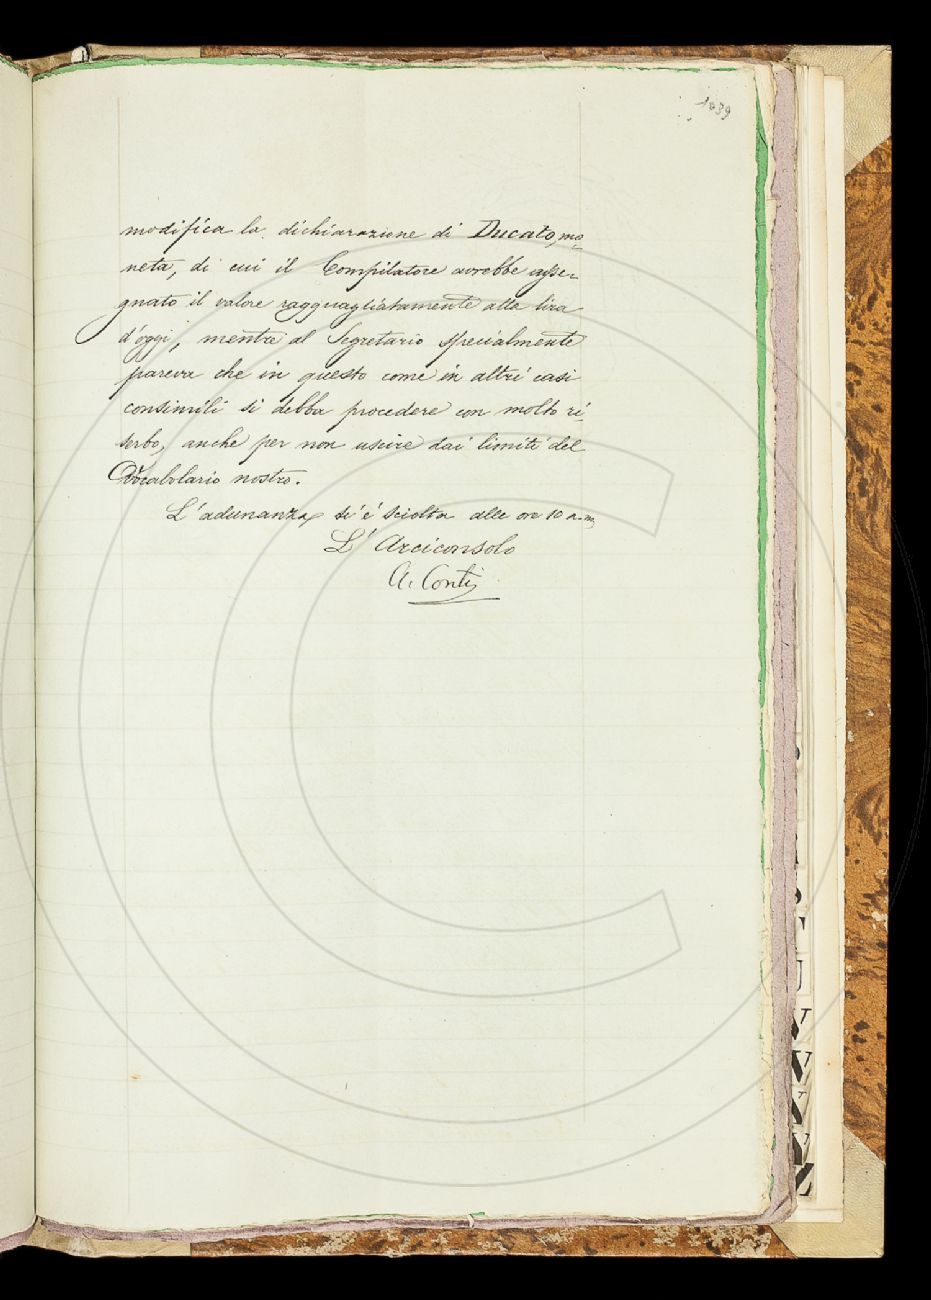 1039
modifica la dichiarazione di Ducato, mo-
neta, di cui il Compilatore avrebbe asse-
gnato il valore ragguagliatamente alla lira
d'oggi, mentre al Segretario specialmente
pareva che in questo come in altri casi
consimili si debba procedere con molto ri-
serbo, anche per non uscire dai limiti del
Vocabolario nostro.
L'adunanza si è sciolta alle ore 10 a.m.
L'Arciconsolo
A. Conti
U
V
W
X
Y
Z